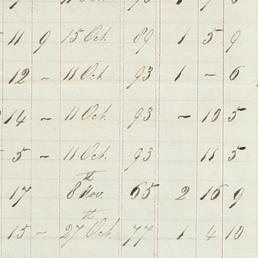 11 9 15 Oct. 89 1 5 9
12 – 11 Oct. 93 1 – 6
14 – 11 Oct. 93 – 19 5
5 – 11 Oct. 93 11 5
17 8th Nov. 65 2 16 9
15 – 27th Oct. 77 1 4 10